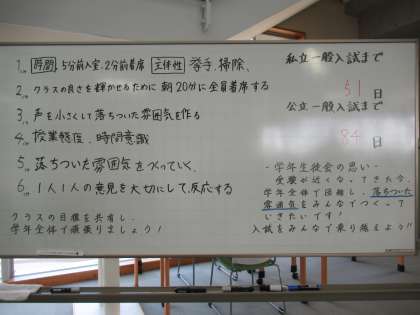 1. 時間 5分前入室、2分前着席 主体性 挙手、掃除、
2. クラスの良さを輝かせるために朝20分に全員着席する
3. 声を小さくして落ちついた雰囲気を作る
4. 授業態度、時間意識
5. 落ちついた雰囲気をつくっていく、
6. 1人1人の意見を大切にして、反応する
クラスの目標を共有し、
学年全体で頑張りましょう!
私立一般入試まで
51日
公立一般入試まで
84日
-学年生徒会の思い-
受験が近くなってきた今、
学年全体で団結し、落ちついた
雰囲気をみんなでつくって
いきたいです!
入試をみんなで乗り越えよう!!